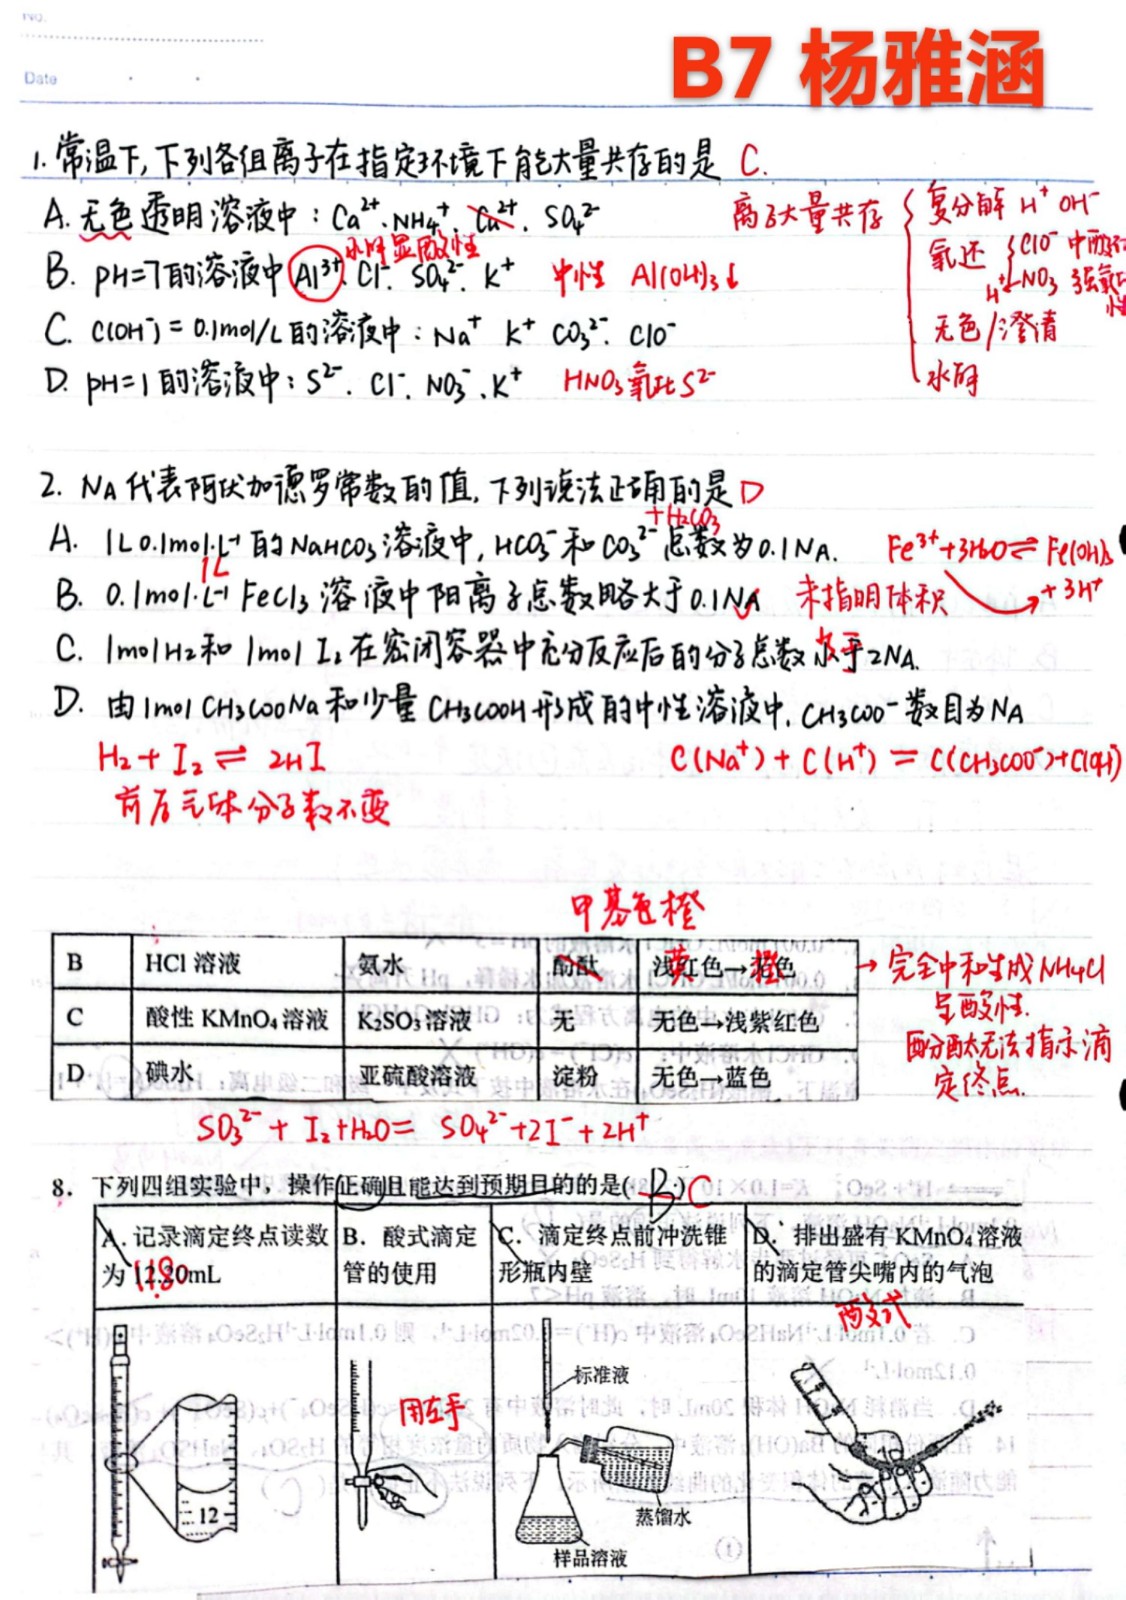 No.
Date
B7 杨雅涵
1. 常温下,下列各组离子在指定环境下能大量共存的是 C.
A. 无色透明溶液中: Ca²⁺. NH₄⁺. Cu²⁺. SO₄²⁻
离子大量共存
复分解 H⁺ OH⁻
水解显酸性
氧还
ClO⁻
H⁺ NO₃
无色/澄清
水解
B. pH=7的溶液中 Al³⁺. Cl⁻. SO₄²⁻. K⁺ 中性 Al(OH)₃↓
C. C(OH⁻)=0.1mol/L的溶液中: Na⁺ K⁺ CO₃²⁻. ClO⁻
D. pH=1的溶液中: S²⁻. Cl⁻. NO₃⁻. K⁺ HNO₃氧化S²⁻
2. NA代表阿伏加德罗常数的值,下列说法正确的是 D
+H₂CO₃
A. 1L 0.1mol·L⁻¹的NaHCO₃溶液中, HCO₃⁻和CO₃²⁻总数为0.1NA.
Fe³⁺+3H₂O⇌Fe(OH)₃
+3H⁺
1L
B. 0.1mol·L⁻¹ FeCl₃溶液中阳离子总数略大于0.1NA 未指明体积
C. 1mol H₂和1mol I₂在密闭容器中充分反应后的分子总数于2NA.
D. 由1mol CH₃COONa和少量CH₃COOH形成的中性溶液中, CH₃COO⁻数目为NA
H₂+I₂⇌2HI
C(Na⁺)+C(H⁺)=C(CH₃COO⁻)+C(OH⁻)
前后气体分子数不变
甲基橙
B HCl 溶液 氨水 酚酞 浅红色→色
黄 橙
→完全中和生成NH₄Cl
呈酸性.
酚酞无法指示滴
定终点.
C 酸性 KMnO₄ 溶液 K₂SO₃ 溶液 无 无色→浅紫红色
D 碘水 亚硫酸溶液 淀粉 无色→蓝色
SO₃²⁻+I₂+H₂O=SO₄²⁻+2I⁻+2H⁺
8. 下列四组实验中,操作正确且能达到预期目的的是( B ) C
A. 记录滴定终点读数为 12.20mL
11.80
B. 酸式滴定管的使用
C. 滴定终点前冲洗锥形瓶内壁
D. 排出盛有 KMnO₄ 溶液的滴定管尖嘴内的气泡
酸式
12
用左手
标准液
蒸馏水
样品溶液